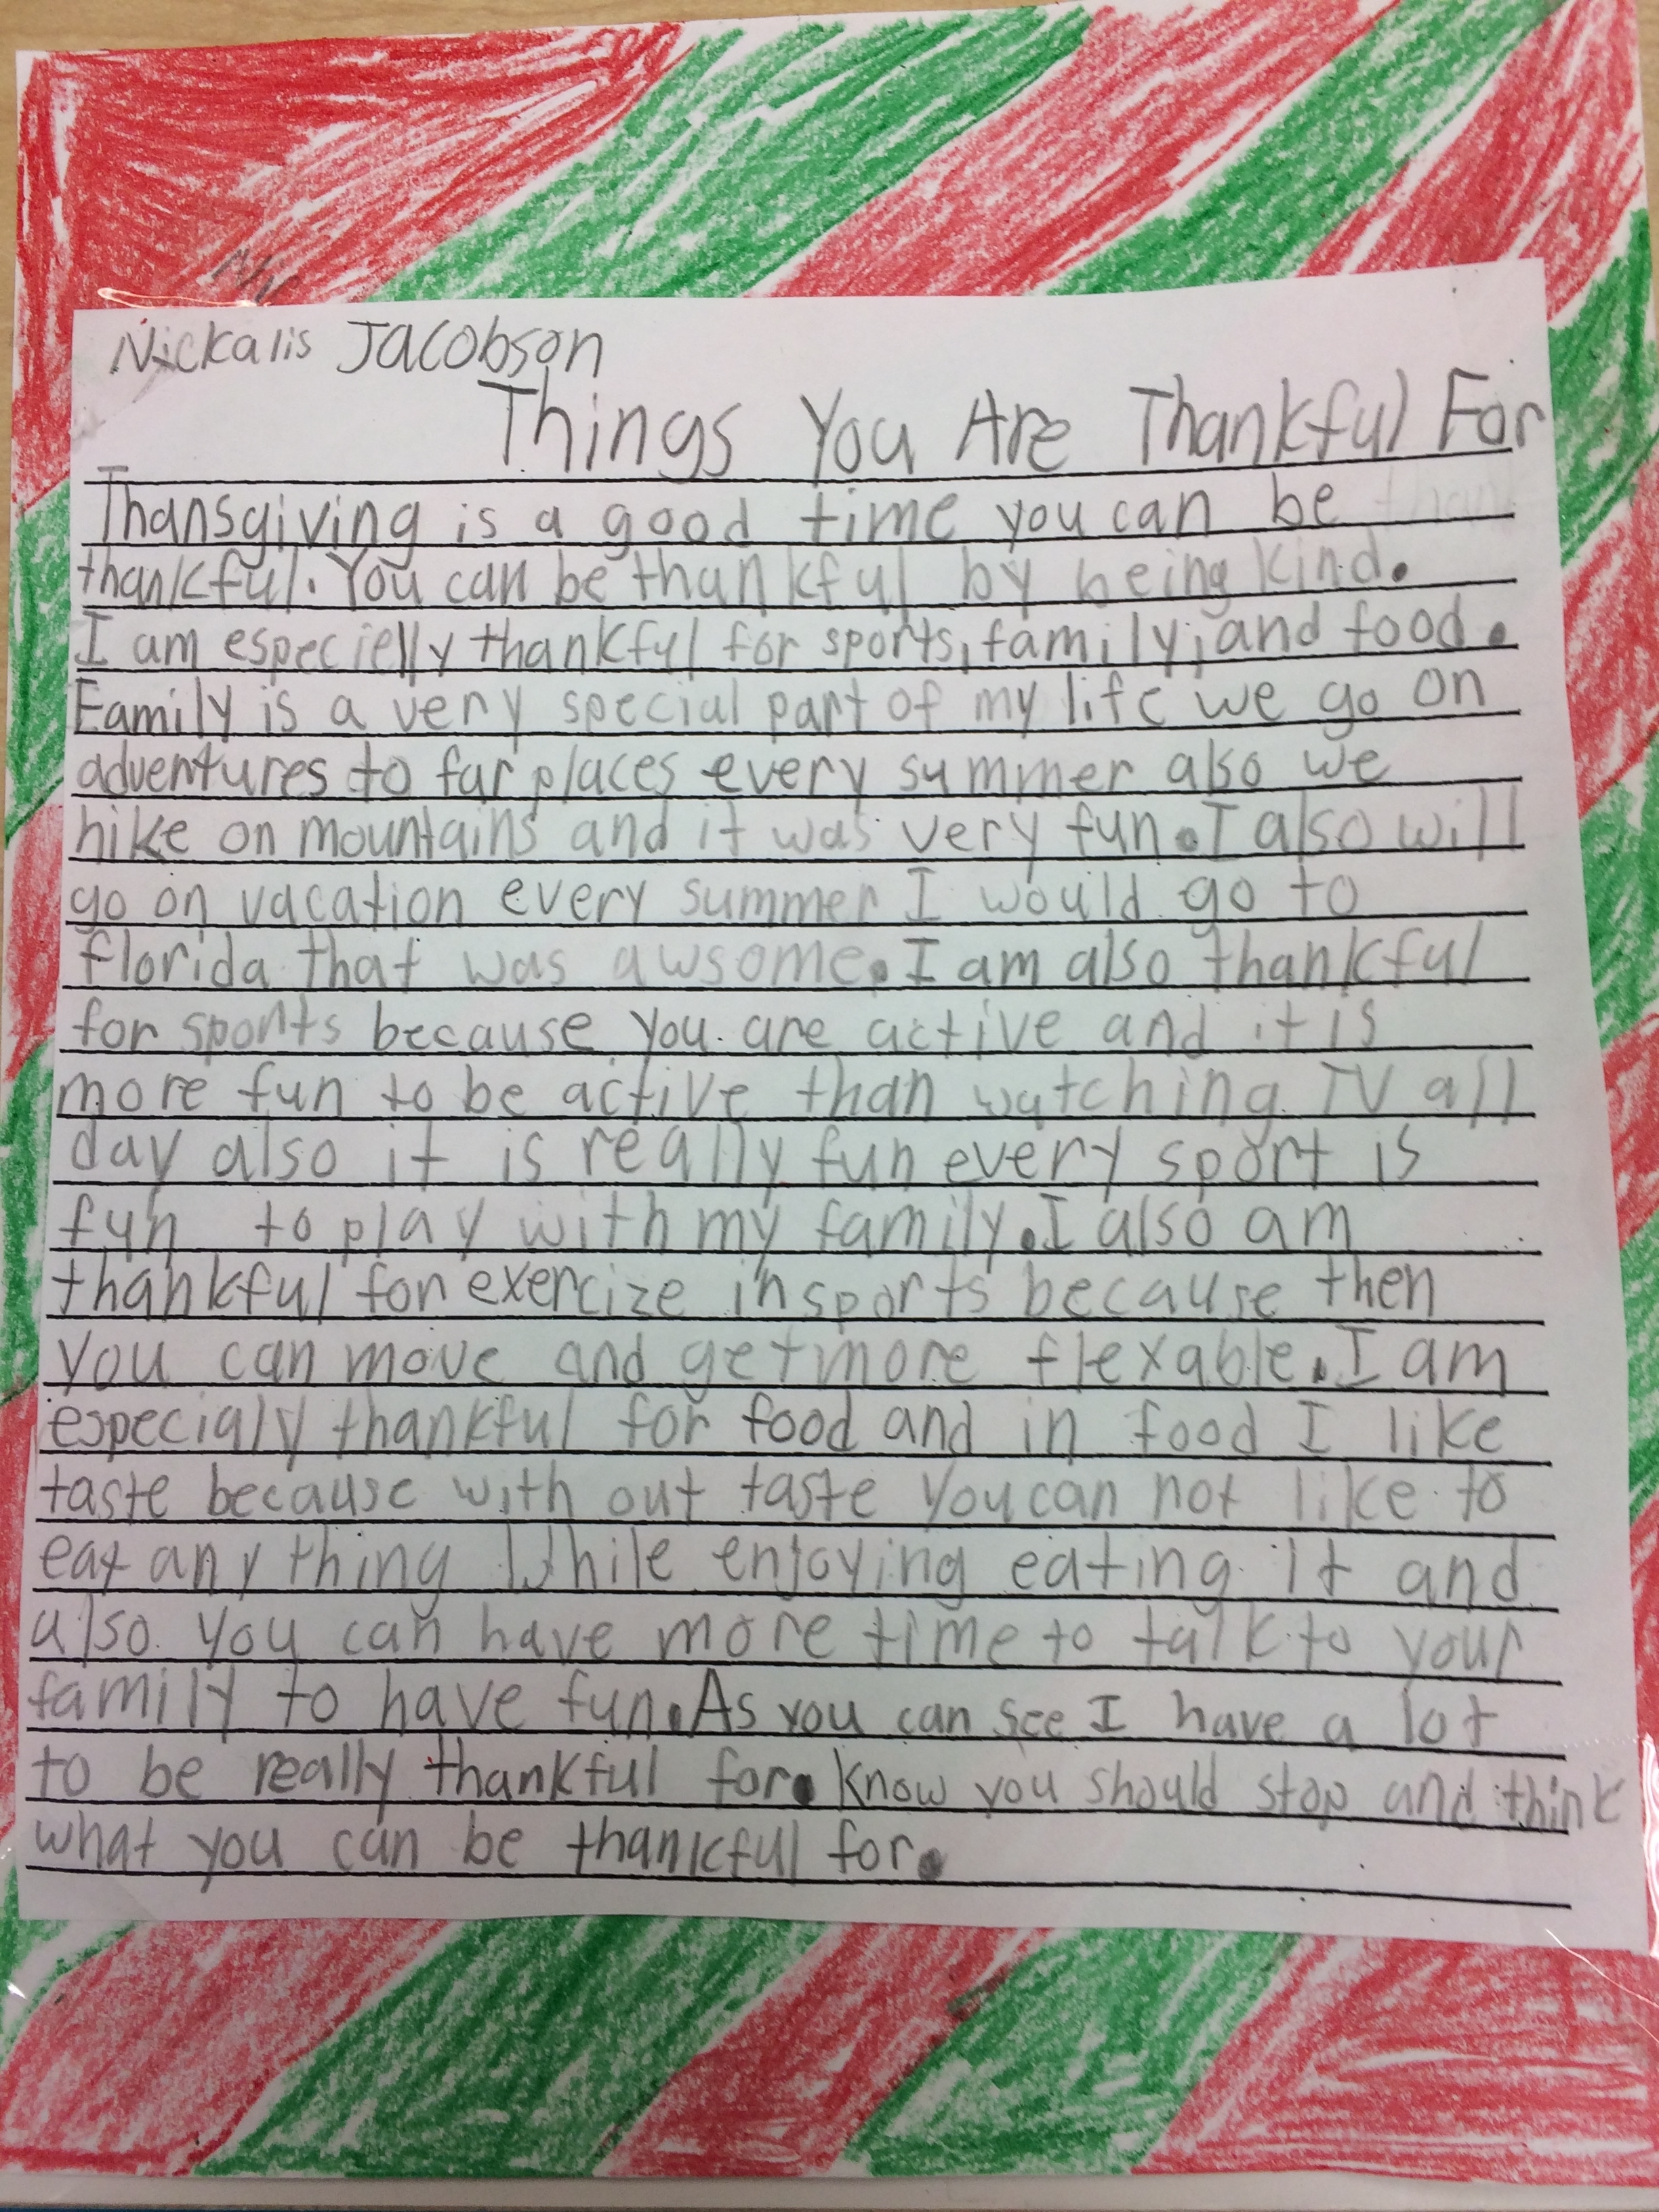 Nickalis Jacobson
Things You Are Thankful For
Thansgiving is a good time you can be
thankful. You can be thankful by being kind.
I am especielly thankful for sports, family, and food.
Family is a very special part of my life we go on
adventures to far places every summer also we
hike on mountains and it was very fun. I also will
go on vacation every summer I would go to
florida that was awsome. I am also thankful
for sports because you are active and it is
more fun to be active than watching TV all
day also it is really fun every sport is
fun to play with my family. I also am
thankful for exercize in sports because then
you can move and get more flexable. I am
especialy thankful for food and in food I like
taste because with out taste you can not like to
eat any thing While enjoying eating it and
also you can have more time to talk to your
family to have fun. As you can see I have a lot
to be really thankful for. Know you should stop and think
what you can be thankful for.